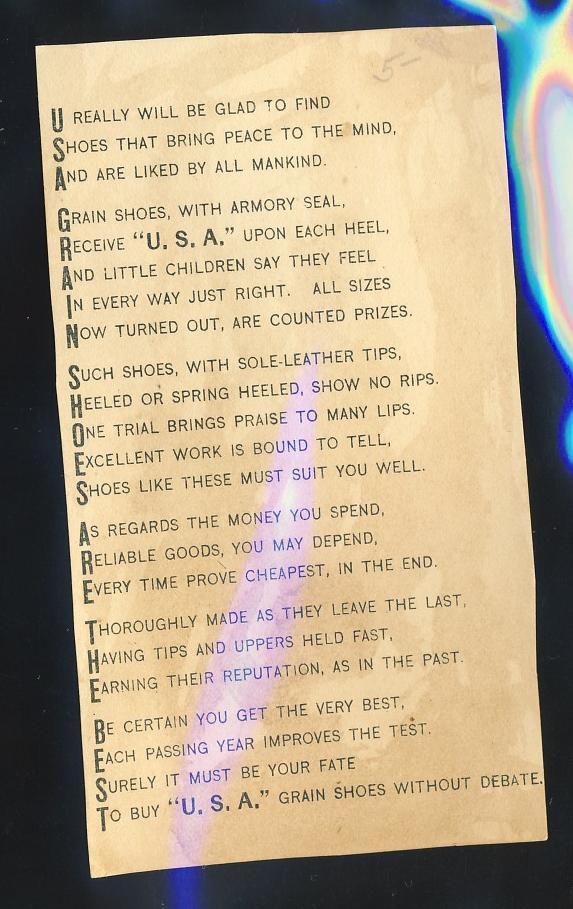 5-
U REALLY WILL BE GLAD TO FIND
SHOES THAT BRING PEACE TO THE MIND,
AND ARE LIKED BY ALL MANKIND.
GRAIN SHOES, WITH ARMORY SEAL,
RECEIVE "U. S. A." UPON EACH HEEL,
AND LITTLE CHILDREN SAY THEY FEEL
IN EVERY WAY JUST RIGHT. ALL SIZES
NOW TURNED OUT, ARE COUNTED PRIZES.
SUCH SHOES, WITH SOLE-LEATHER TIPS,
HEELED OR SPRING HEELED, SHOW NO RIPS.
ONE TRIAL BRINGS PRAISE TO MANY LIPS.
EXCELLENT WORK IS BOUND TO TELL,
SHOES LIKE THESE MUST SUIT YOU WELL.
AS REGARDS THE MONEY YOU SPEND,
RELIABLE GOODS, YOU MAY DEPEND,
EVERY TIME PROVE CHEAPEST, IN THE END.
THOROUGHLY MADE AS THEY LEAVE THE LAST,
HAVING TIPS AND UPPERS HELD FAST,
EARNING THEIR REPUTATION, AS IN THE PAST.
BE CERTAIN YOU GET THE VERY BEST,
EACH PASSING YEAR IMPROVES THE TEST.
SURELY IT MUST BE YOUR FATE
TO BUY "U. S. A." GRAIN SHOES WITHOUT DEBATE.